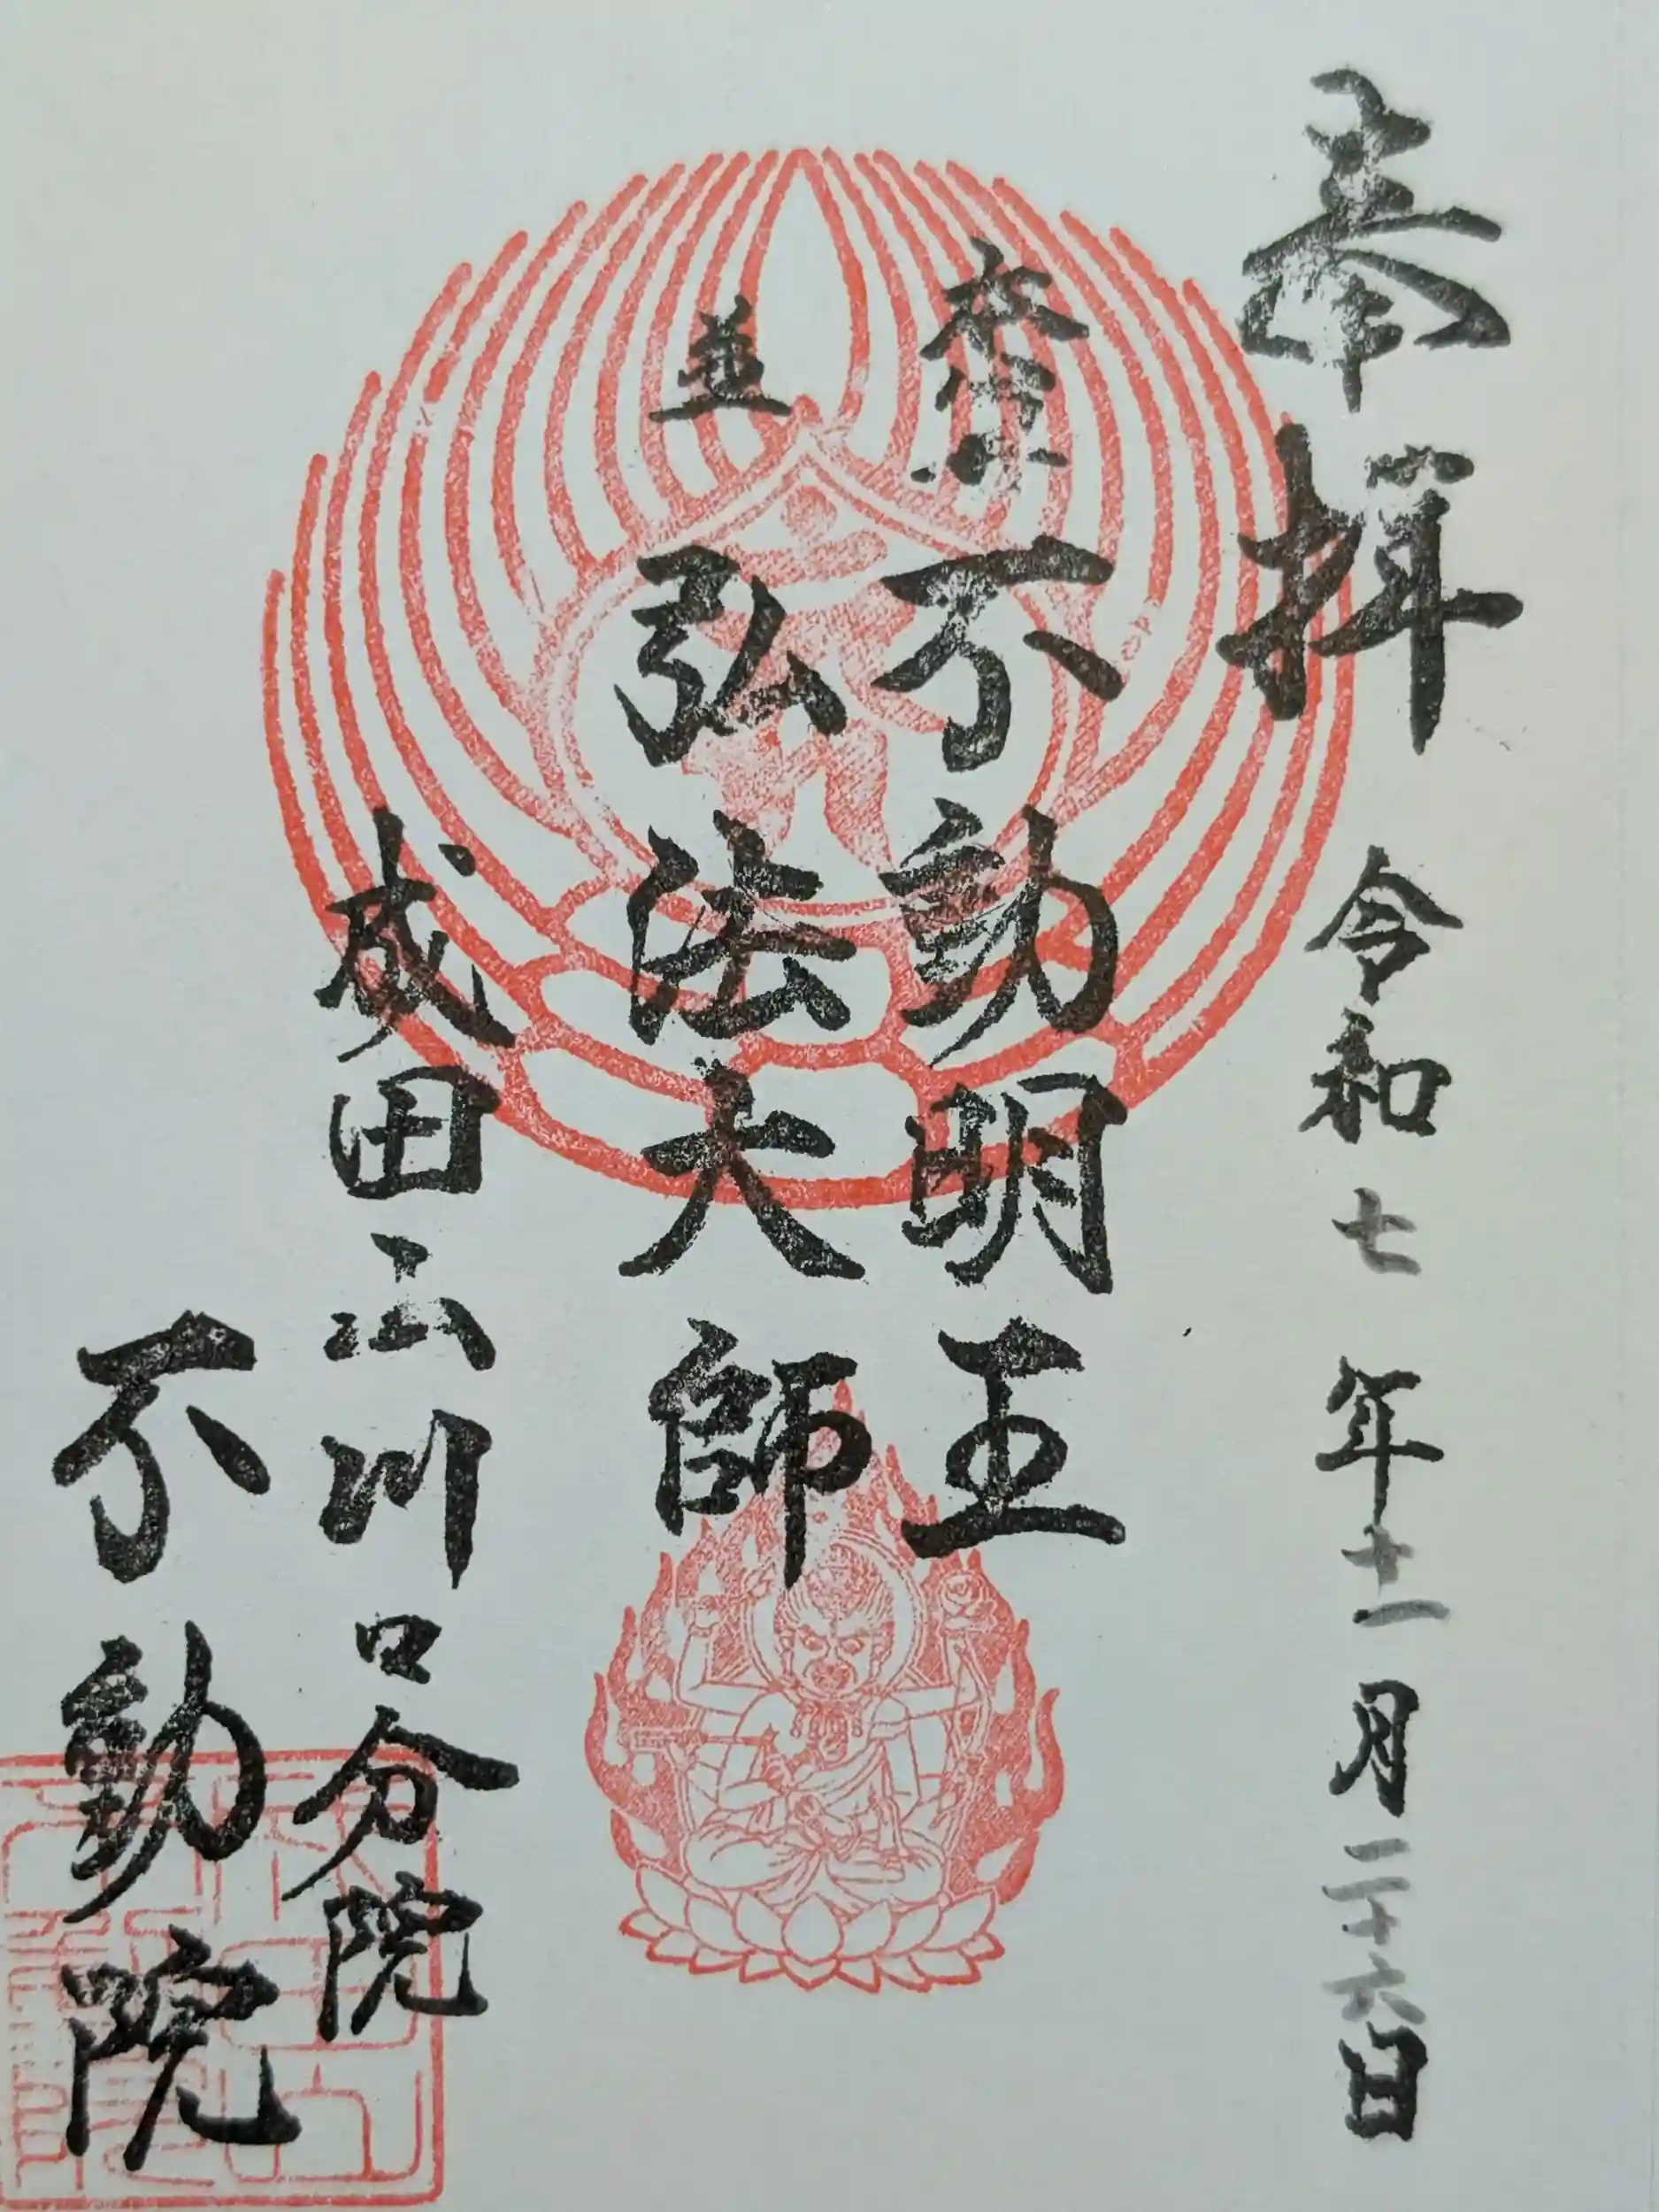 奉拝 令和七年十一月二十六日
本尊 不動明王
並 弘法大師
成田山川口分院
不動院